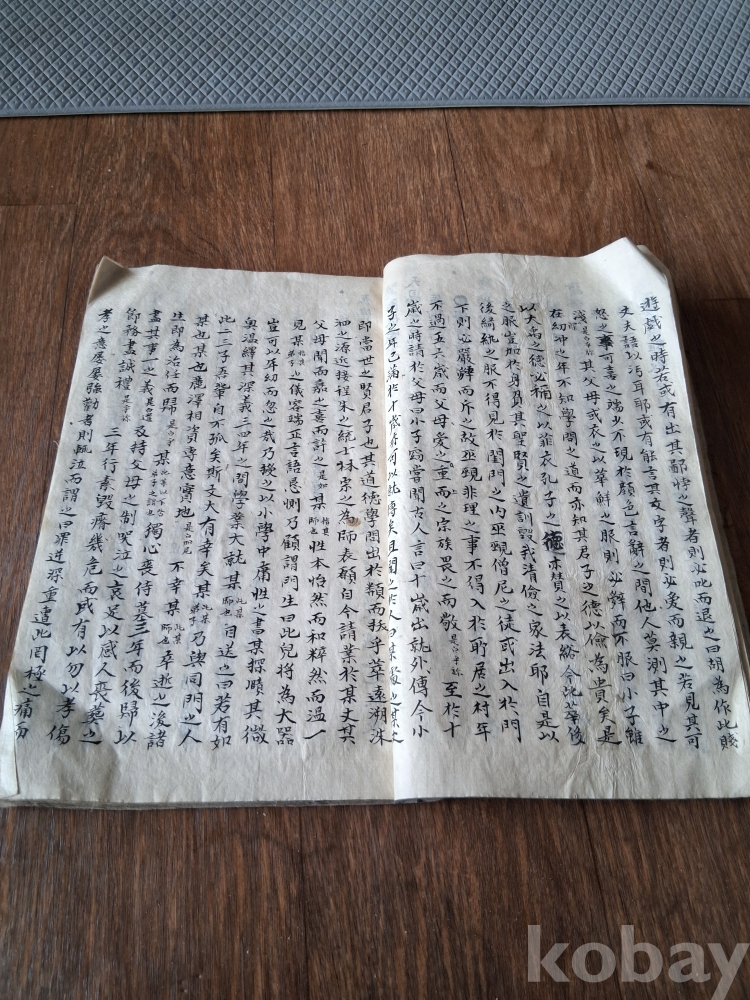 遊戱之時若或有出其鄙悖之聲者則必叱而退之曰胡爲作此賤
丈夫語以汚耳耶或有能言其文字者則必愛而親之若見其可
忽之事可喜之端必不現於顔色言辭之間他人莫測其中之
淺 其父母或衣之以華鮮之服則必辭而不服曰小子雖
在幼冲之年不知學問之道而亦知其君子之德以儉爲貴矣是
以大禹之德必稱之以菲衣孔子之德亦贊之以表綌今此華侈
之服豈加於身乎其聖賢之遺訓設我淸儉之家法耶自是以
後綺紈之服不得見於閨門之內巫覡僧尼之徒或出入於門
下則必嚴辭而斥之故巫覡非理之事不得入於所居之村年
不過五六歲而父母愛之重而宗族畏之而敬 至於十
歲之時請於父母曰小子竊嘗聞古人言曰十歲出就外傅今小
子之年已滿於十歲 可以就傅矣且聞之
即當世之賢君子也其道德學問出於類而拔乎萃遠溯洙
泗之源近接程朱之統士林宗之爲師表願自今請業於某丈其
父母聞而嘉之喜而許之 某 性本怡然而和粹然而溫一
見某 之儀容端正言語恳惻乃顧謂門生曰此兒將爲大器
豈可以年幼而忽之哉乃授之以小學中庸性之書某探賾其微
奧溫繹其深義三四年之間學業大就某 自送之曰若有如
此二三子吾輩自不孤矣斯文大有幸矣某 乃與同門之人
某也某也麗澤相資專意實地 不幸某 卒逝之後諸
生即爲治任而歸 某 獨心喪侍墓三年而後歸以
盡其事一之義 及持父母之制哭泣之哀足以感人喪葬之
節務盡誠禮 三年行素毁瘠幾危而或有以勿以孝傷
孝之意屢屢强勸者則輒泣而謂之曰罪逆深重遭此罔極之痛而